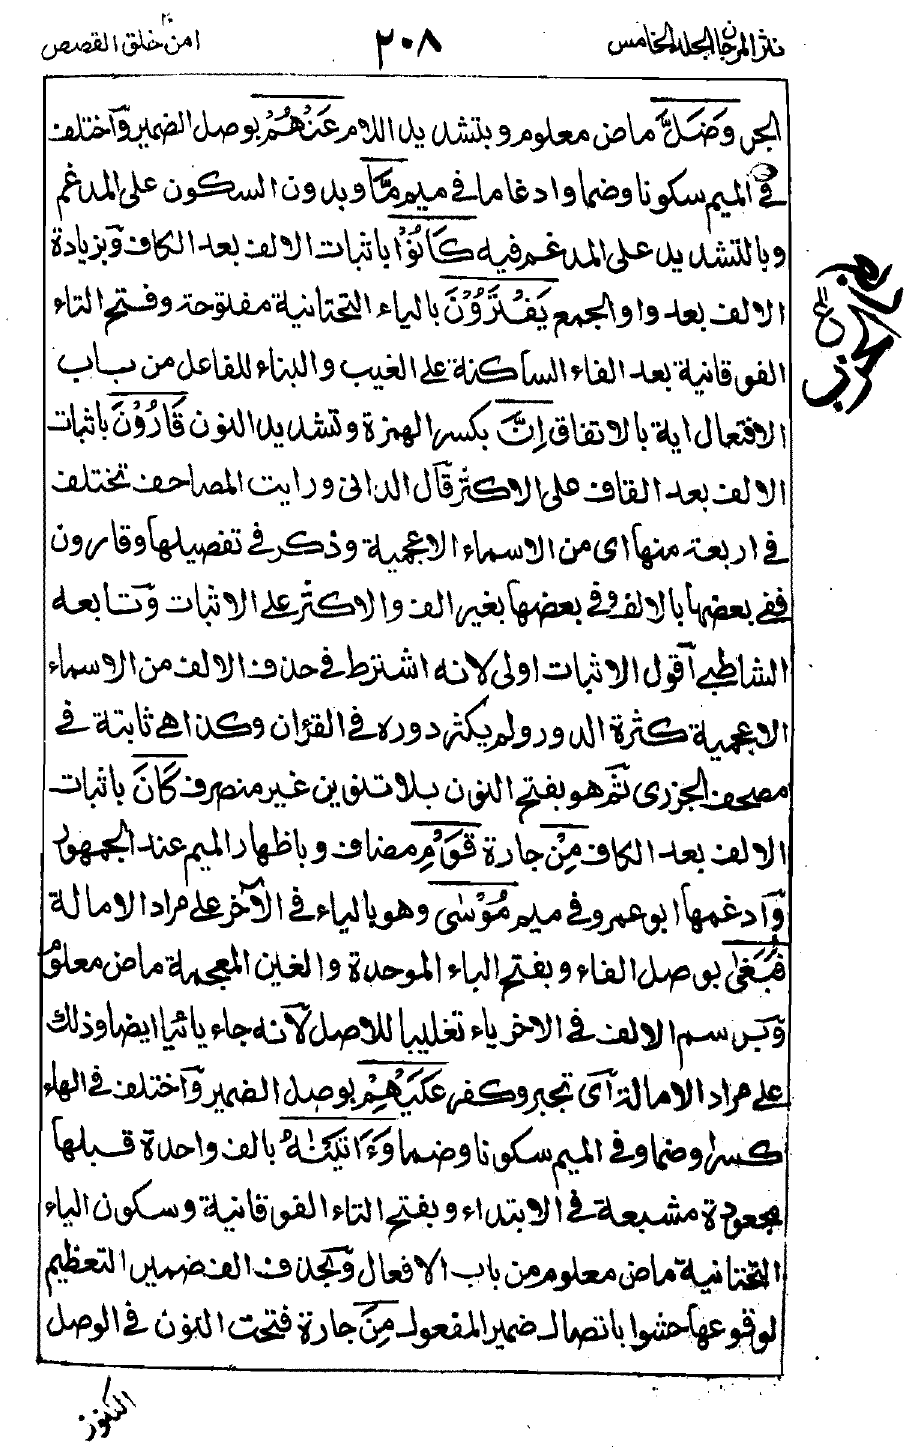 نثر المرجان المجلد الخامس
٢٠٨
امن خلق القصص
الجر وَضَلَّ ماض معلوم وبتشديد اللام عَنْهُمْ بوصل الضمير واختلف
في الميم سكونا وضما وادغاما في ميم مَّا وبدون السكون على المدغم
وبالتشديد على المدغم فيه كَانُوْا باثبات الالف بعد الكاف وبزيادة
الالف بعد واو الجمع يَفْتَرُوْنَ بالياء التحتانية مفتوحة وفتح التاء
الفوقانية بعد الفاء الساكنة على الغيب والبناء للفاعل من باب
الافتعال اية بالاتفاق اِنَّ بكسر الهمزة وتشديد النون قَارُوْنَ باثبات
الالف بعد القاف على الاكثر قال الداني ورايت المصاحف تختلف
في اربعة منها اى من الاسماء الاعجمية وذكر في تفصيلها وقارون
ففي بعضها بالالف وفي بعضها بغير الف والاكثر على الاثبات وتابعه
الشاطبي اقول الاثبات اولى لانه اشترط في حذف الالف من الاسماء
الاعجمية كثرة الدور ولم يكثر دوره في القران وكذا هي ثابتة في
مصحف الجزري ثم هو بفتح النون بلا تنوين غير منصرف كَانَ باثبات
الالف بعد الكاف مِنْ جارة قَوْمِ مضاف وباظهار الميم عند الجمهور
وادغمها ابو عمرو في ميم مُوْسٰى وهو بالياء في الآخر على مراد الامالة
فَبَغٰى بوصل الفاء وبفتح الباء الموحدة والغين المعجمة ماض معلوم
وبرسم الالف في الاخر ياء تغليبا للاصل لانه جاء يائيا ايضا وذلك
على مراد الامالة اى تجبر وكفر عَلَيْهِمْ بوصل الضمير واختلف في الهاء
كسرا وضما وفي الميم سكونا وضما وَءَاتَيْنٰهُ بالف واحدة قبلها
مجعودة مشبعة في الابتداء وبفتح التاء الفوقانية وسكون الياء
التحتانية ماض معلوم من باب الافعال وبحذف الف ضمير التعظيم
لوقوعها حشوا باتصال ضمير المفعول مِنَ جارة فتحت النون في الوصل
الكنوز